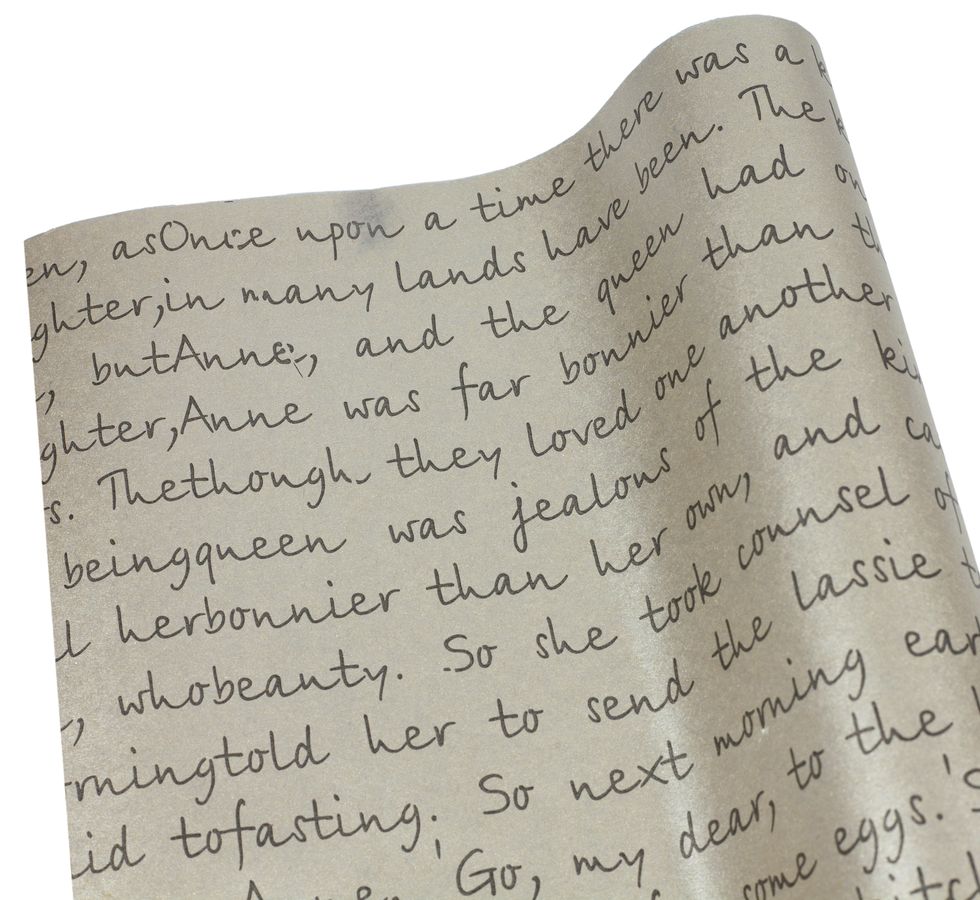 en, asOnce upon a time there was a k
ghter,in many lands have been. The k
, butAnne, and the queen had on
ghter,Anne was far bonnier than th
s. Thethough they loved one another
beingqueen was jealous of the ki
l herbonnier than her own, and ca
, whobeauty. So she took counsel of
rningtold her to send the lassie t
id tofasting. So next morning ear
'Go, my dear, to the
some eggs.' S